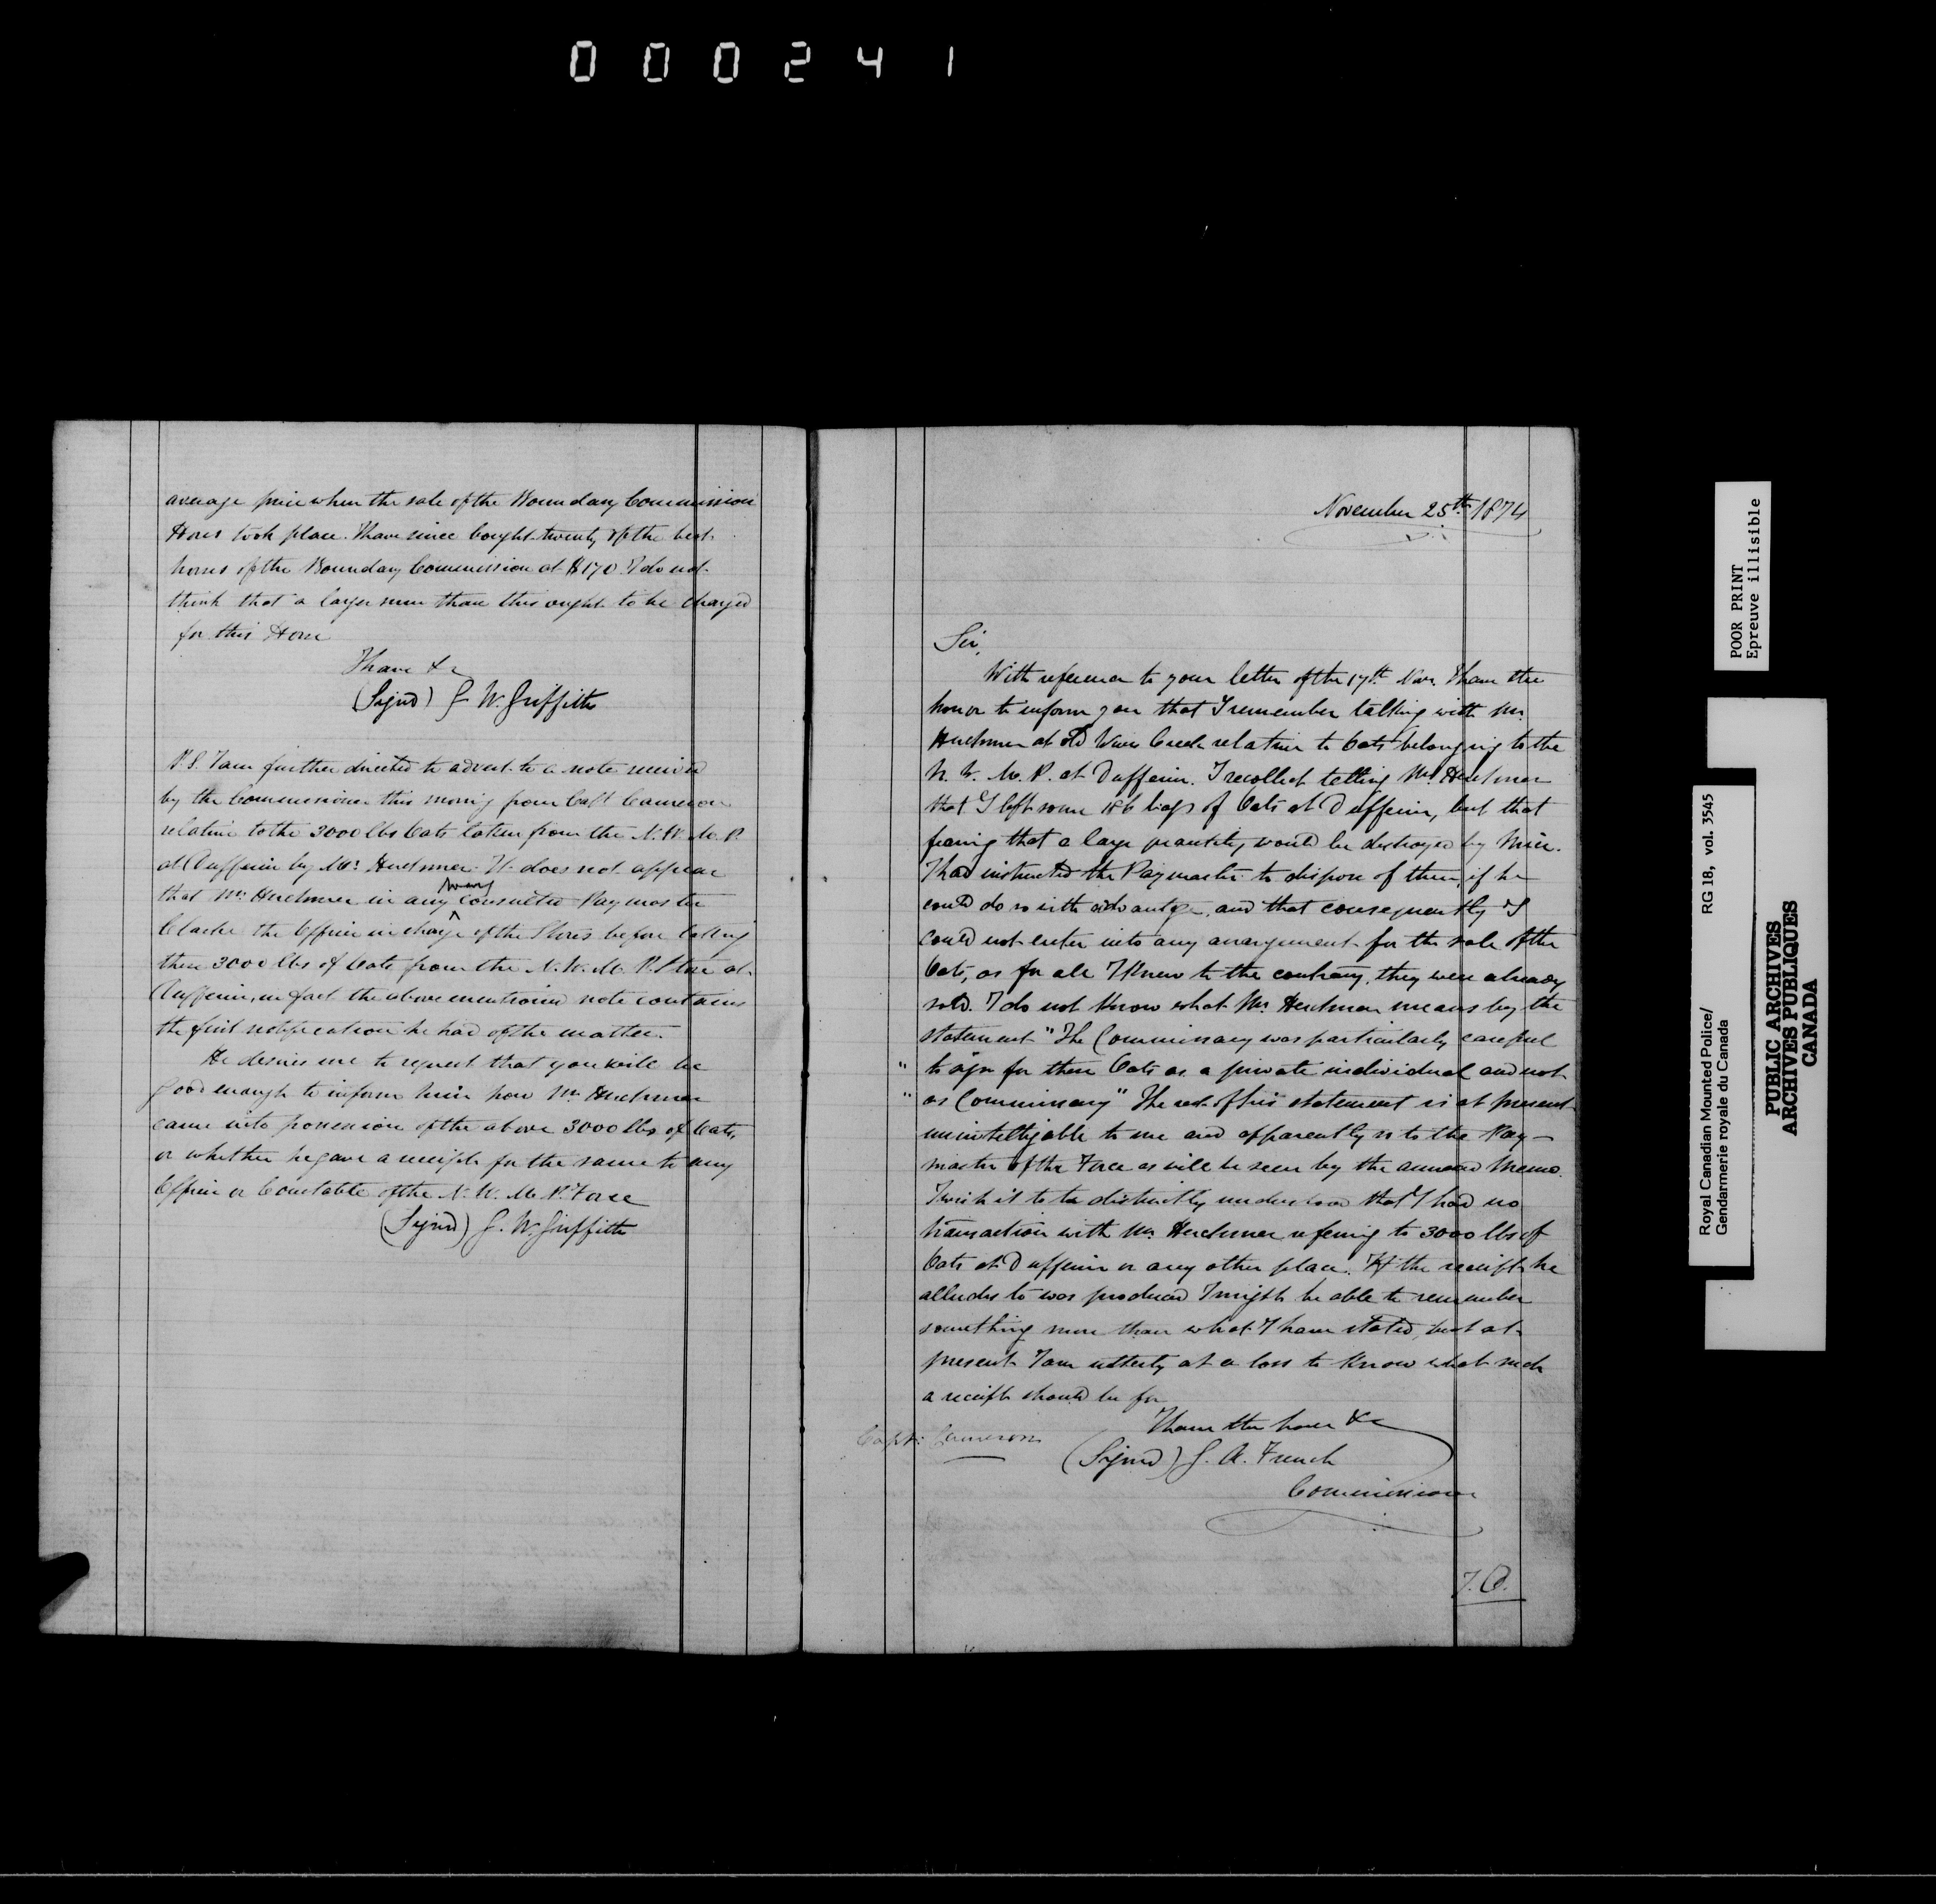 000241
average price when the sale of the Boundary Commission
Horses took place. I have since bought twenty of the best
horses of the Boundary Commission at $170. I do not
think that a larger sum than this ought to be charged
for this Horse
I have &c
(Signd) J. W. Griffith
P.S. I am further directed to advert to a note received
by the Commissioner this morning from Capt Cameron
relative to the 3000 lbs Oats taken from the N.W.M.P.
at Dufferin by Mr. Herchmer. It does not appear
that Mr. Herchmer in any way consulted Paymaster
Clarke the Officer in charge of the Stores before taking
these 3000 lbs of Oats from the N.W.M.P. Store at
Dufferin, in fact the above mentioned note contains
the first notification he had of the matter.
He desires me to request that you will be
good enough to inform him how Mr Herchmer
came into possession of the above 3000 lbs of Oats,
or whether he gave a receipt for the same to any
Officer or Constable of the N.W.M.P. Force
(Signd) J. W. Griffith
November 25th 1874
Sir,
With reference to your letter of the 17th Nov. I have the
honor to inform you that I remember talking with Mr.
Herchmer at Old Wives Creek relative to Oats belonging to the
N.W.M.P. at Dufferin. I recollect telling Mr Herchmer
that I left some 186 bags of Oats at Dufferin, but that
fearing that a large quantity would be destroyed by Mice.
I had instructed the Paymaster to dispose of them, if he
could do so with advantage, and that consequently I
could not enter into any arrangement for the sale of the
Oats, as for all I knew to the contrary, they were already
sold. I do not know what Mr. Herchmer means by the
statement "The Commissary was particularly careful
" to sign for these Oats as a private individual and not
" as Commissary" The rest of his statement is at present
unintelligable to me and apparently is to the Pay-
master of the Force as will be seen by the annexed Memo.
I wish it to be distinctly understood that I had no
transaction with Mr. Herchmer refering to 3000 lbs of
Oats at Dufferin or any other place. If the receipt he
alludes to was produced I might be able to remember
something more than what I have stated, but at
present I am utterly at a loss to know what such
a receipt should be for
I have the honor &c
Capt. Cameron
(Signd) G. A. French
Commissioner
T.O.
POOR PRINT
Epreuve illisible
RG 18, vol. 3545
Royal Canadian Mounted Police/
Gendarmerie royale du Canada
PUBLIC ARCHIVES
ARCHIVES PUBLIQUES
CANADA